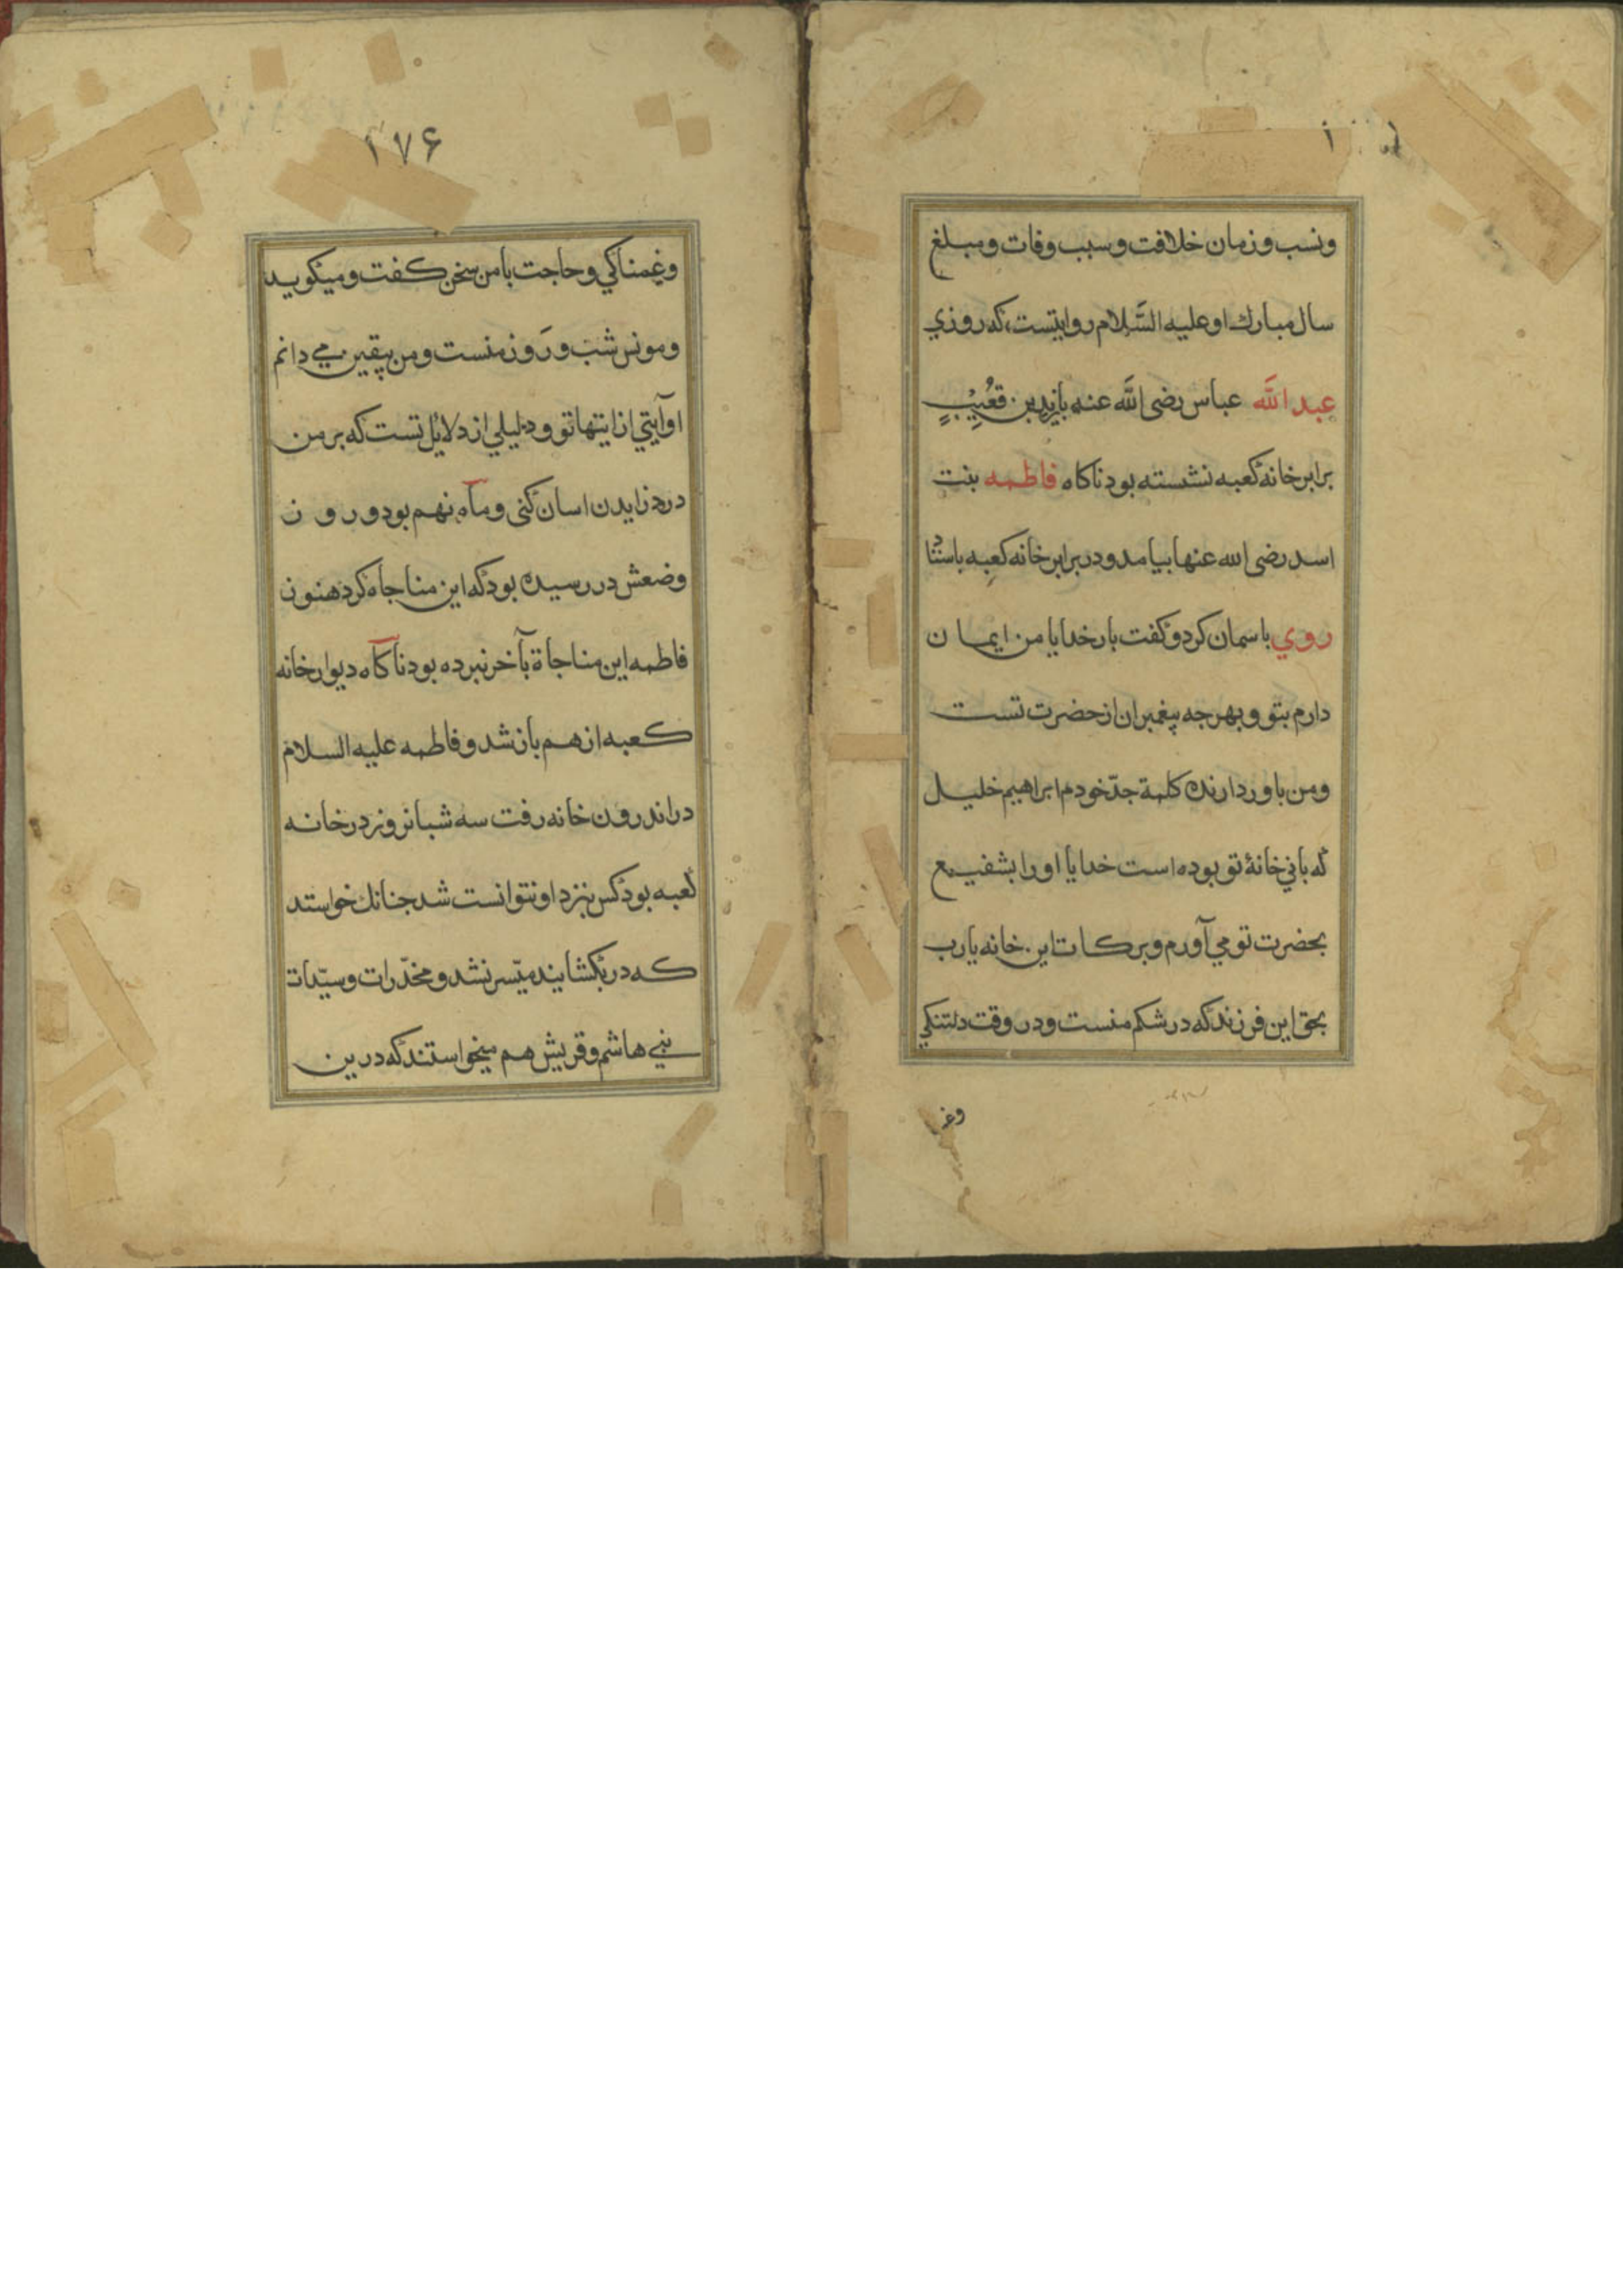 ونسب و زمان خلافت و سبب وفات و مبلغ
سال مبارك او عليه السَّلام روايتست كه روزي
عبد الله عباس رضى الله عنه با يزيد بن قعيب
برابر خانه كعبه نشسته بود ناكاه فاطمه بنت
اسد رضى الله عنها بيامد و در برابر خانه كعبه باستاد
روي باسمان كرد و كفت بار خدايا من ايمان
دارم بتو و بهر جه پيغمبران از حضرت تست
و من باور دارنده كلمة جدّ خودم ابراهيم خليل
كه باني خانۀ تو بوده است خدايا او را بشفيع
بحضرت تو مي آورم و بركات اين خانه يا رب
بحق اين فرزند كه در شكم منست و در وقت دلتنكي
وغمـ
۱۷۶
وغمناكي و حاجت با من سخن كفت و ميكويد
و مونس شب و روز منست و من بيقين مي دانم
او آيتي از ايتهاتو و دليلي از دلائل تست كه بر من
درد زايدن اسان كنى و ماه نهم بود و رون
وضعش در رسيده بود كه اين مناجاه كرد هنون
فاطمه اين مناجاة بآخر نبرده بود ناكاه ديوار خانه
كعبه از هم باز شد و فاطمه عليه السلام
در اندرون خانه رفت سه شبانروز در خانه
كعبه بود كس بنزد او نتوانست شد جنانك خواستند
كه در بكشايند ميّسر نشد و مخدّرات و سيّدات
بني هاشم و قريش هم ميخواستند كه درين